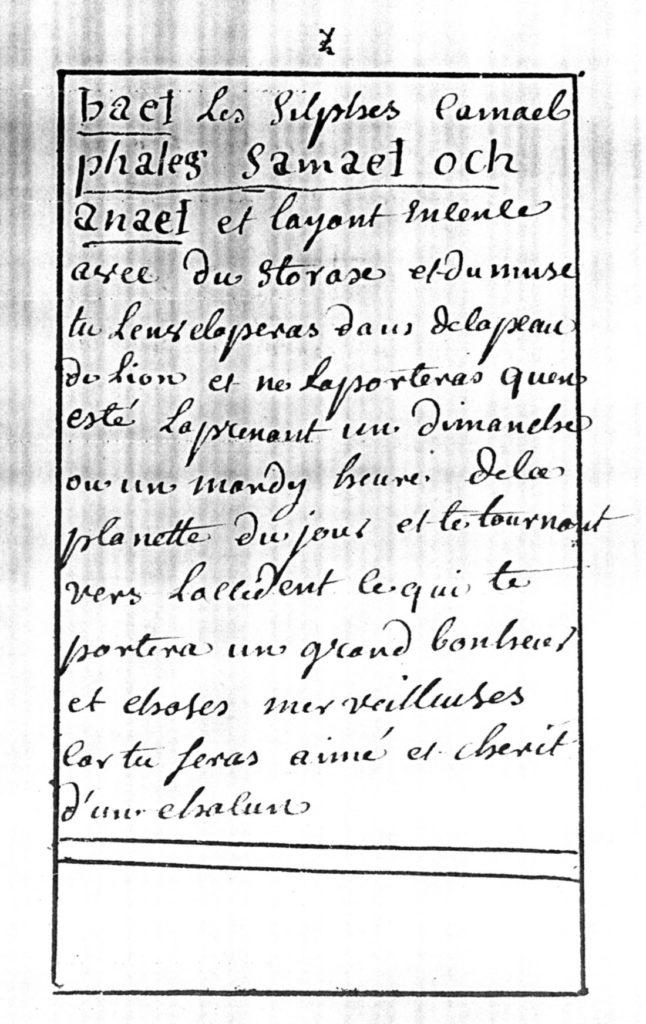 hael Les Silphes Camael
phaleg Samael och
anael et layant encencé
avec du storax et du musc
tu lenveloperas dans dela peau
de lion et ne laporteras quen
esté laprenant un dimanche
ou un mardy heure dela
planette du jour et te tournant
vers laccident ce qui te
portera un grand bonheur
et choses merveilleuses
car tu seras aimé et cherit
d'un chacun